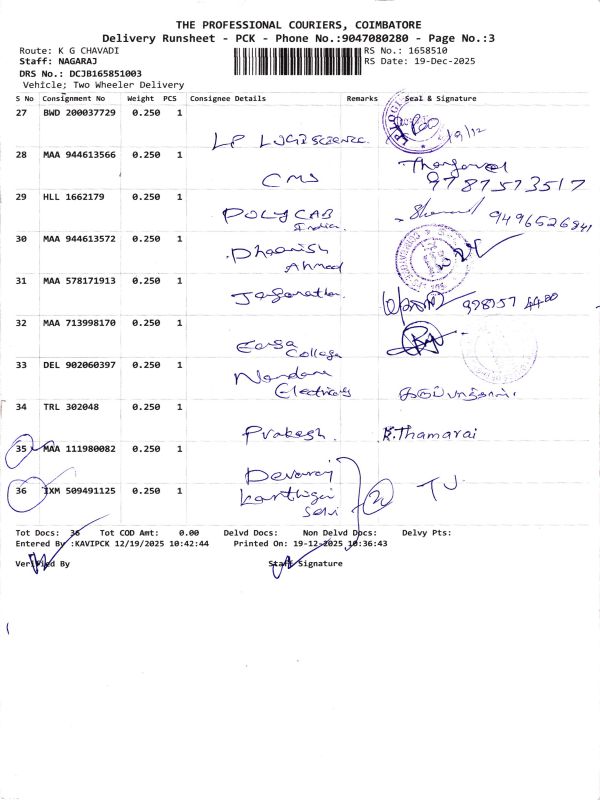 THE PROFESSIONAL COURIERS, COIMBATORE
Delivery Runsheet - PCK - Phone No.:9047080280 - Page No.:3
Route: K G CHAVADI
RS No.: 1658510
Staff: NAGARAJ
RS Date: 19-Dec-2025
DRS No.: DCJB165851003
Vehicle; Two Wheeler Delivery
S No Consignment No Weight PCS Consignee Details Remarks Seal & Signature
27 BWD 200037729 0.250 1
28 MAA 944613566 0.250 1
CMS
Thangavel
9787573517
29 HLL 1662179 0.250 1
POLYCAB
India.
9496526841
30 MAA 944613572 0.250 1
Dhaanish
Ahmed
31 MAA 578171913 0.250 1
Jaganathan.
32 MAA 713998170 0.250 1
Easa
College
33 DEL 902060397 0.250 1
Nandani
Electricals
34 TRL 302048 0.250 1
Prakash. K.Thamarai
35 MAA 111980082 0.250 1
Devaraj
36 IXM 509491125 0.250 1
Karthigai
Selvi
TJ
Tot Docs: 36 Tot COD Amt: 0.00 Delvd Docs: Non Delvd Docs: Delvy Pts:
Entered By :KAVIPCK 12/19/2025 10:42:44 Printed On: 19-12-2025 10:36:43
Verified By Staff Signature